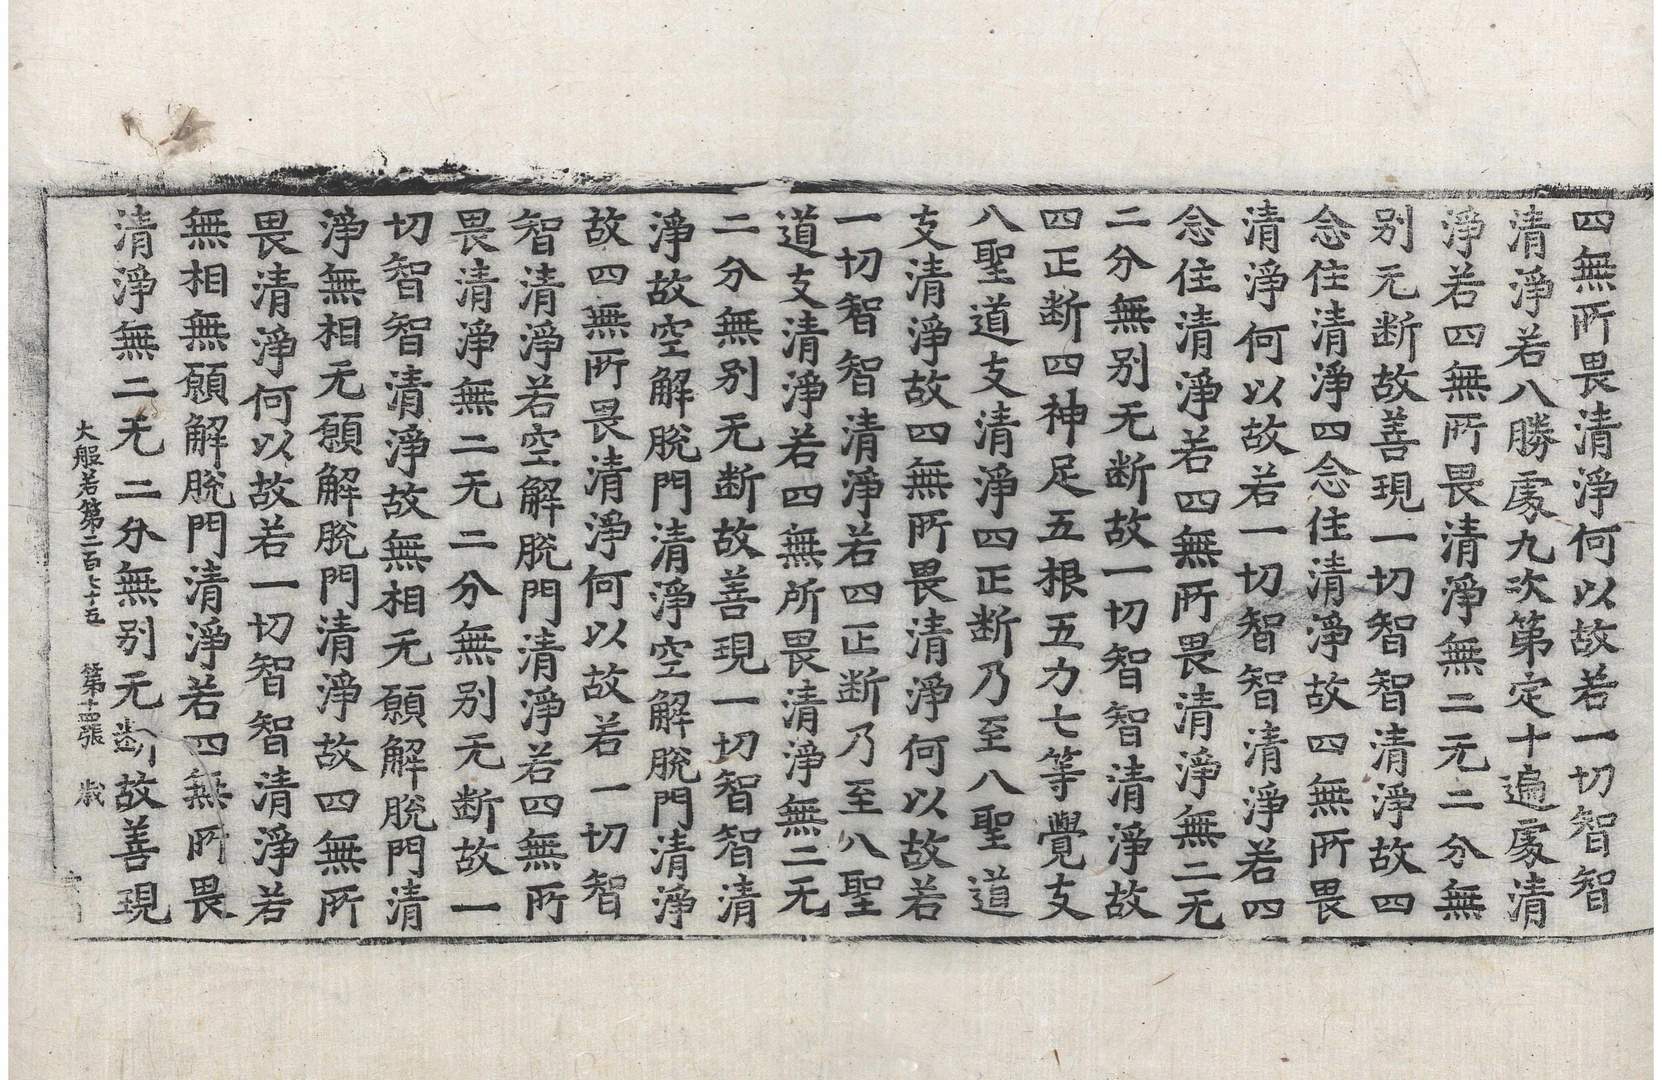 四無所畏清淨何以故若一切智智
清淨若八勝處九次第定十遍處清
淨若四無所畏清淨無二无二分無
别无断故善現一切智智清淨故四
念住清淨四念住清淨故四無所畏
清淨何以故若一切智智清淨若四
念住清淨若四無所畏清淨無二无
二分無别无断故一切智智清淨故
四正断四神足五根五力七等覺支
八聖道支清淨四正断乃至八聖道
支清淨故四無所畏清淨何以故若
一切智智清淨若四正断乃至八聖
道支清淨若四無所畏清淨無二无
二分無别无断故善現一切智智清
淨故空解脫門清淨空解脫門清淨
故四無所畏清淨何以故若一切智
智清淨若空解脫門清淨若四無所
畏清淨無二无二分無别无断故一
切智智清淨故無相无願解脫門清
淨無相无願解脫門清淨故四無所
畏清淨何以故若一切智智清淨若
無相無願解脫門清淨若四無所畏
清淨無二无二分無别无断故善現
大般若第二百七十五 第十四張 歲